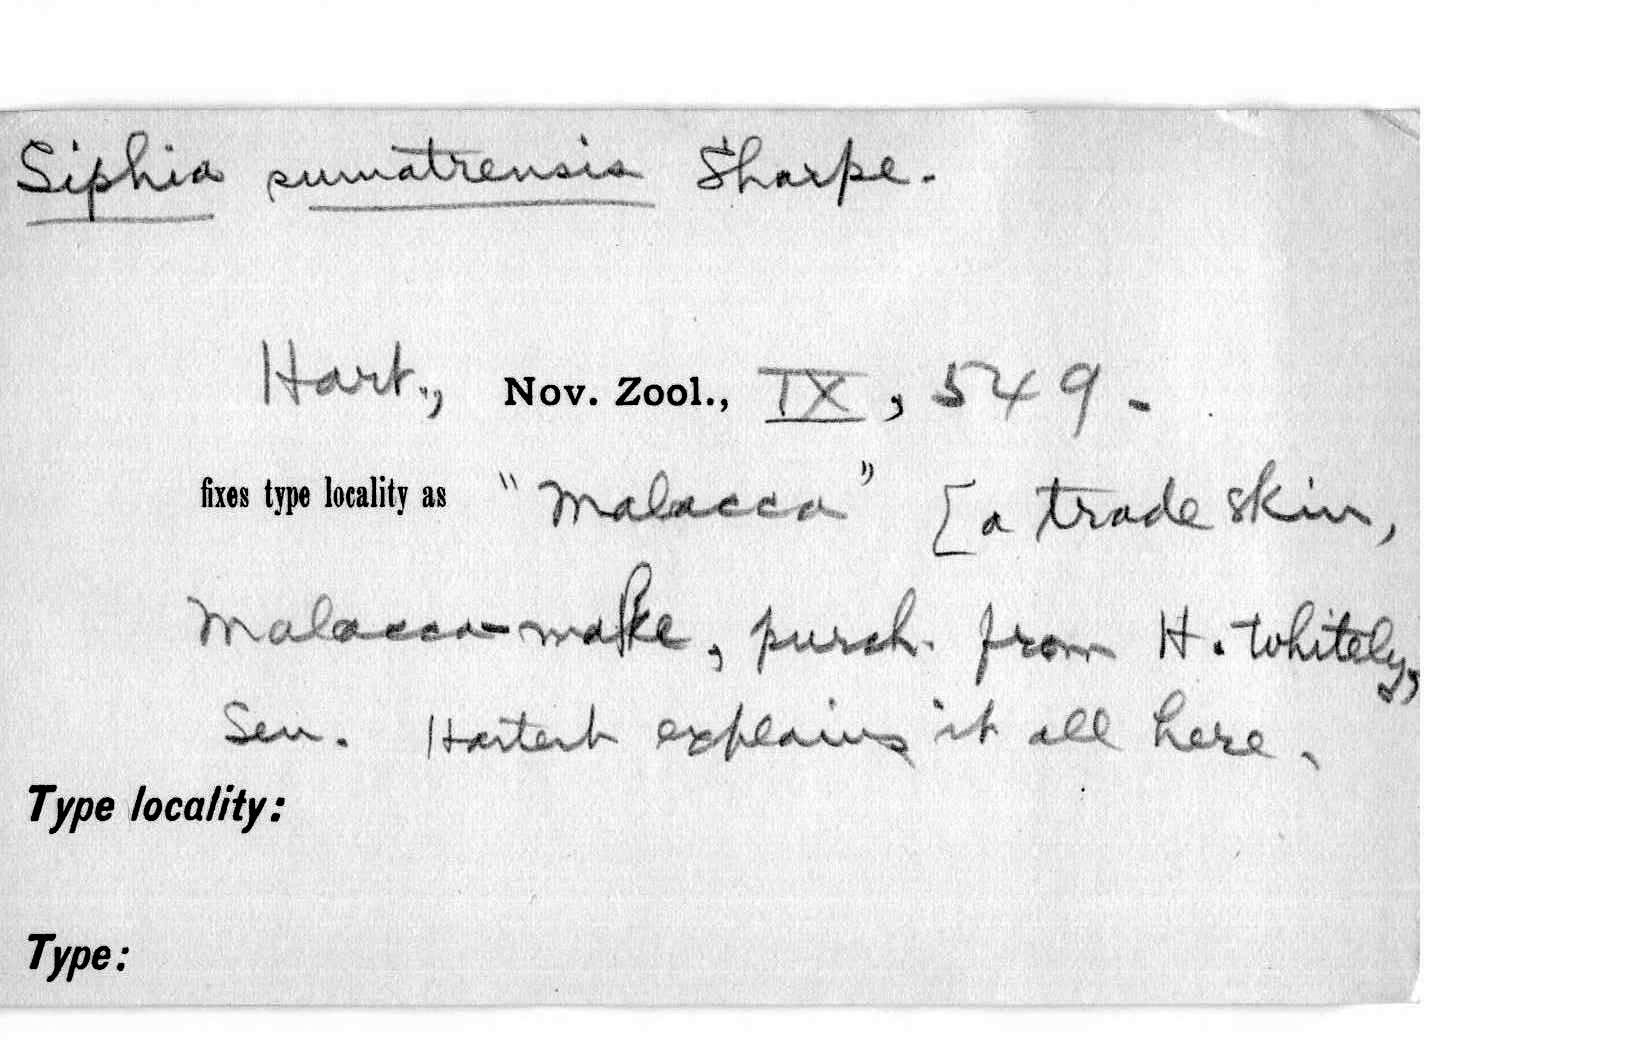 Siphia sumatrensis Sharpe.
Hart., Nov. Zool., IX, 549.
fixes type locality as "Malacca" [a trade skin,
Malacca-make, purch. from H. Whitely,
Sen. Hartert explains it all here.
Type locality:
Type: